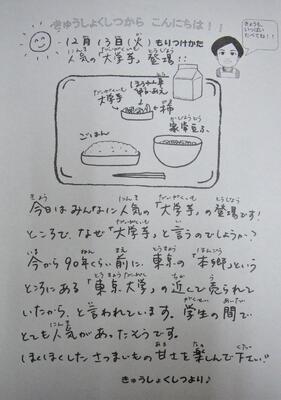 きゅうしょくしつから こんにちは！！
きょうも、
いっぱい
たべてね！！
12月13日(火)もりつけかた
人気の「大学芋」登場!!
だいがくいも
大学芋
ほうれん草
柿
かき
家常豆ふ
ごはん
今日はみんなに人気の「大学芋」の登場です!
ところで、なぜ「大学芋」と言うのでしょうか?
今から90年くらい前に、東京の「本郷」という
ところにある「東京大学」の近くで売られて
いたから、と言われています。学生の間で
とても人気があったそうです。
ほくほくしたさつまいもの甘さを楽しんで下さい!!
きゅうしょくしつより♪